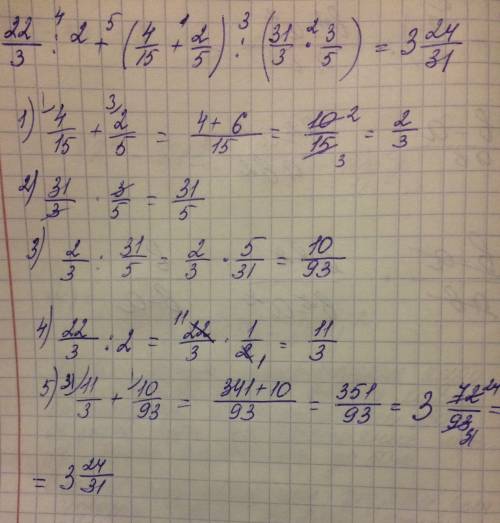 22/3 :⁴ 2 +⁵ (4/15 +¹ 2/5) :³ (31/3 ·² 3/5) = 3 24/31
1) ¹⁾4/15 + ³⁾2/5 = 4+6/15 = 10²/15₃ = 2/3
2) 31/3 · 3/5 = 31/5
3) 2/3 : 31/5 = 2/3 · 5/31 = 10/93
4) 22/3 : 2 = ¹¹22/3 · 1/2₁ = 11/3
5) ³¹⁾11/3 + ¹⁾10/93 = 341+10/93 = 351/93 = 3 72²⁴/93₃₁ =
= 3 24/31